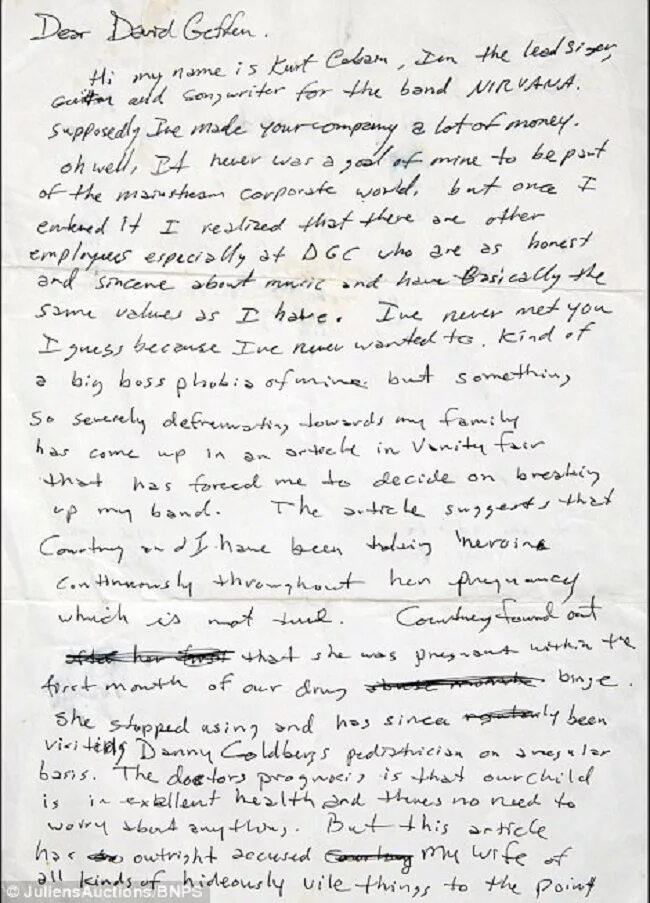 Dear David Geffen.
Hi my name is Kurt Cobain, Im the lead singer,
and songwriter for the band NIRVANA.
supposedly Ive made your company a lot of money.
oh well, It never was a goal of mine to be part
of the mainstream corporate world, but once I
entered it I realized that there are other
employees especially at DGC who are as honest
and sincere about music and have Basically the
same values as I have. Ive never met you
I guess because Ive never wanted to. Kind of
a big boss phobia of mine. but something
so severely defremating towards my family
has come up in an article in Vanity fair
that has forced me to decide on breaking
up my band. The article suggests that
Courtney and I have been taking heroine
continuously throughout her pregnancy
which is not true. Courtney found out
after her first that she was pregnant within the
first month of our drug binge.
She stopped using and has since been
visiting Danny Goldbergs pediatrician on a regular
basis. The doctors prognosis is that our child
is in exellent health and theres no need to
worry about anything. But this article
has outright accused Courtney my wife of
all kinds of hideously vile things to the point
© JuliensAuctions/BNPS